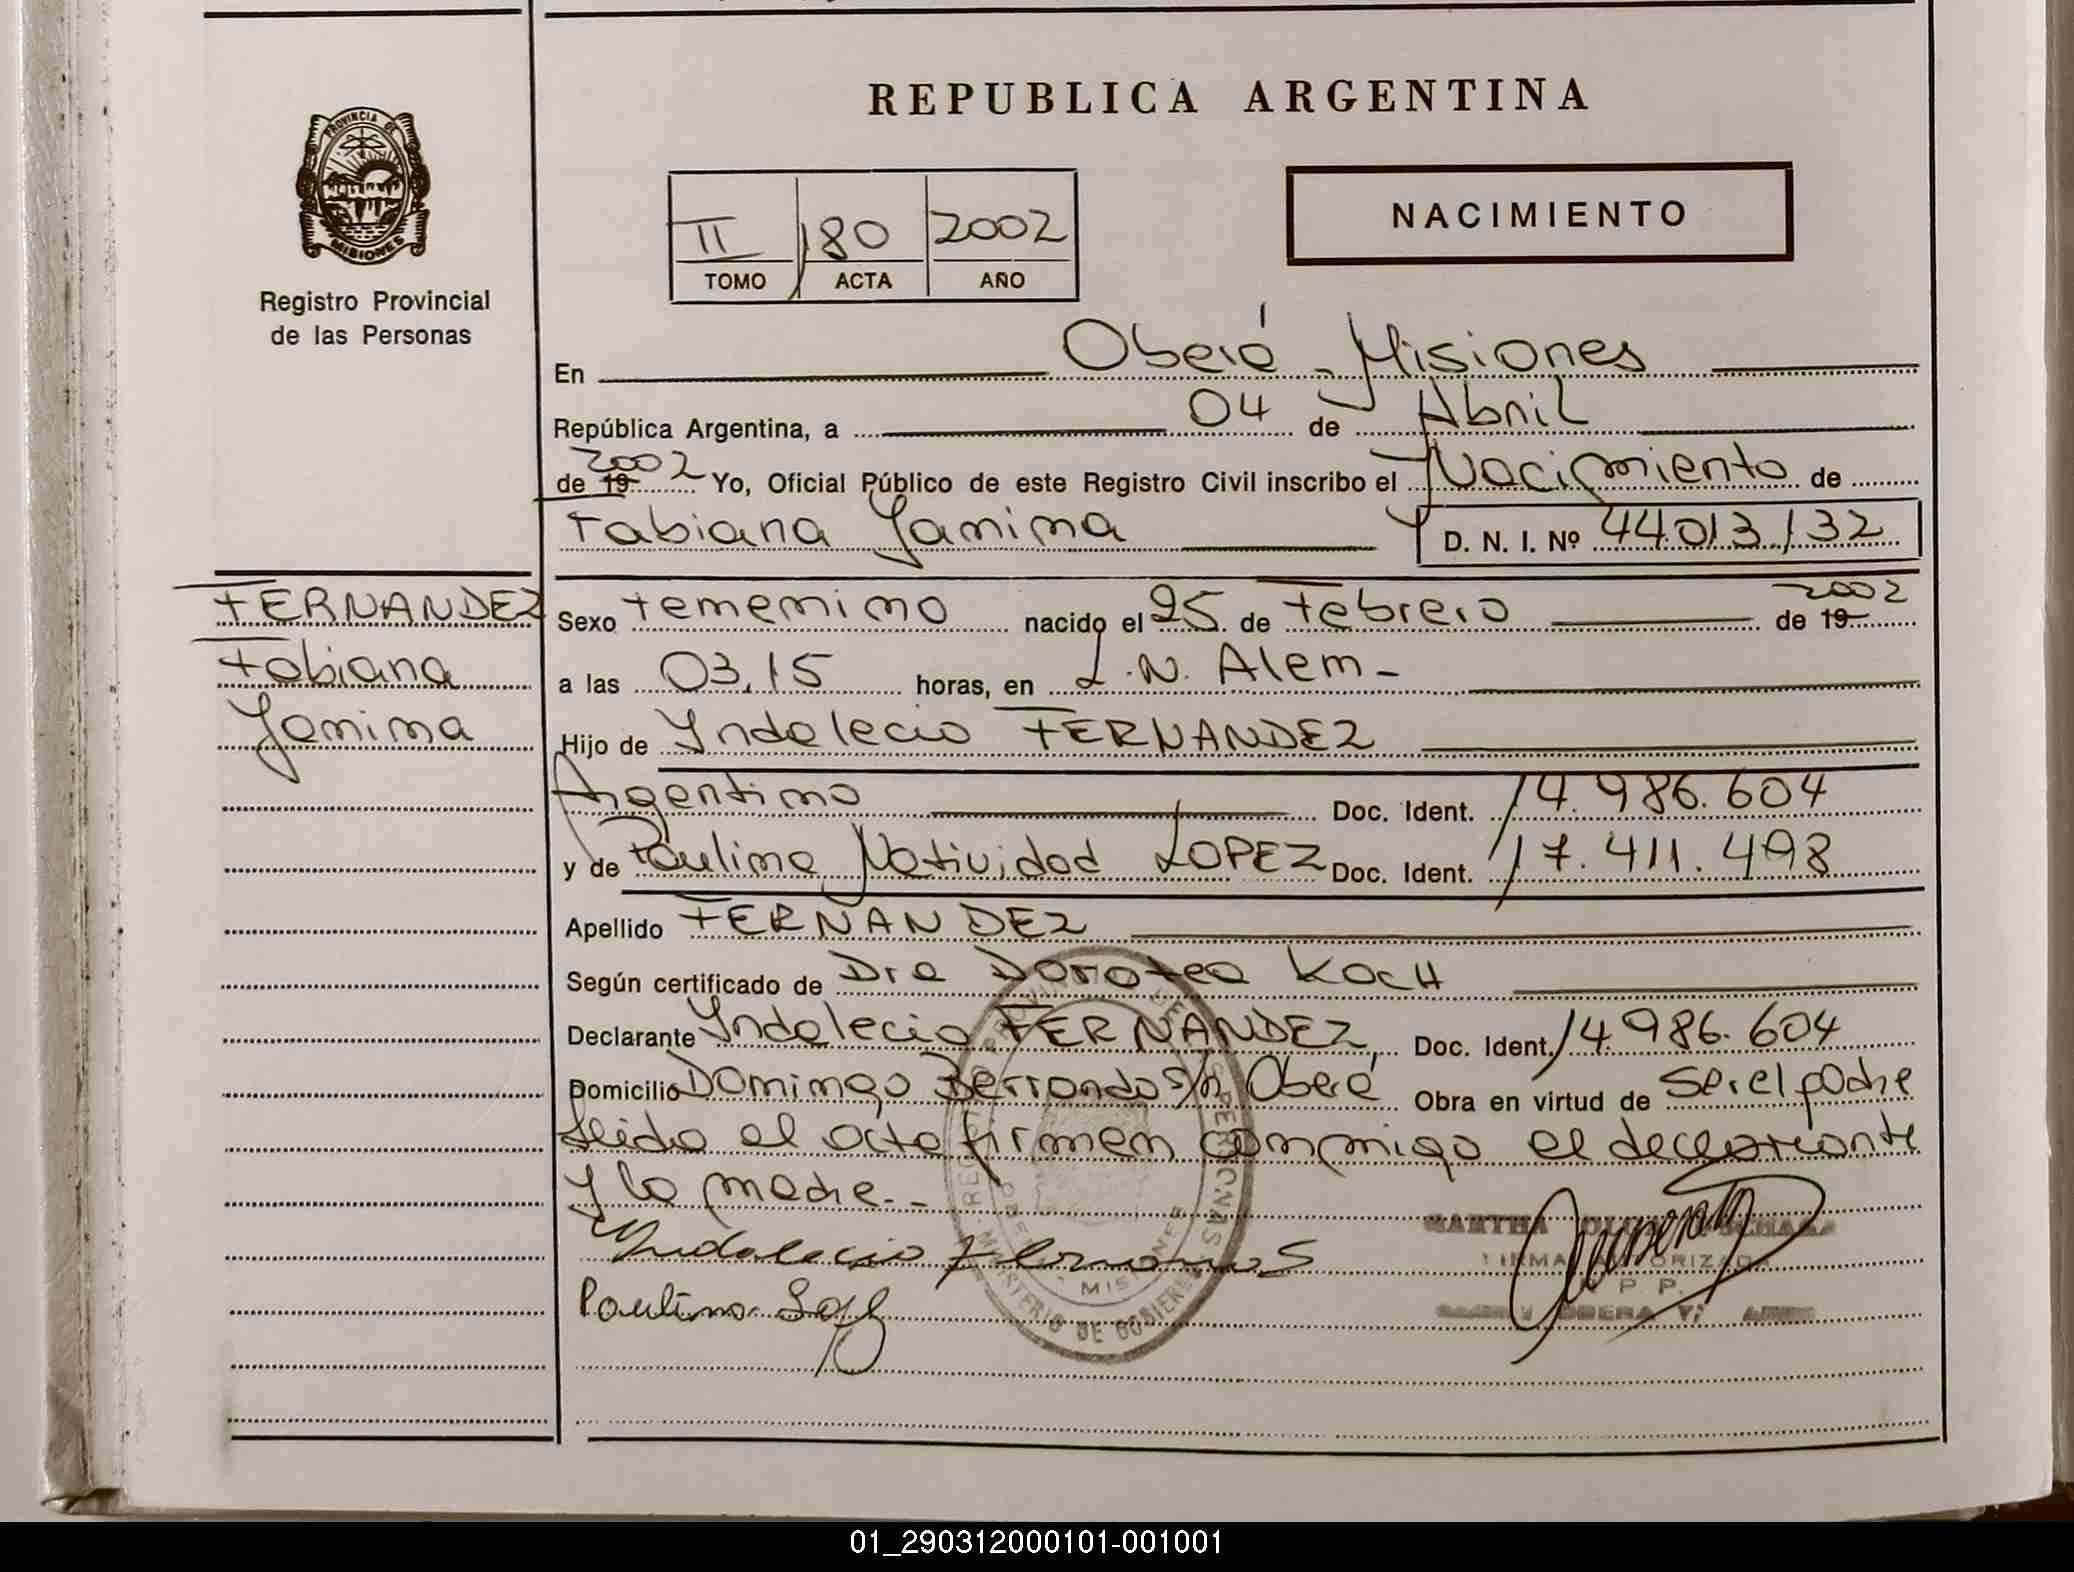 REPUBLICA ARGENTINA
PROVINCIA DE
MISIONES
Registro Provincial
de las Personas
II 180 2002
TOMO ACTA AÑO
NACIMIENTO
En Oberá - Misiones
República Argentina, a 04 de Abril
de 19 2002 Yo, Oficial Público de este Registro Civil inscribo el Nacimiento de
Fabiana Yanina D. N. I. Nº 44.013.132
FERNANDEZ
Fabiana
Yanina
Sexo Femenino nacido el 25 de Febrero de 19 2002
a las 03,15 horas, en L.N. Alem -
Hijo de Yndalecio FERNANDEZ
Argentino Doc. Ident. 14.986.604
y de Paulina Natividad LOPEZ Doc. Ident. 17.411.498
Apellido FERNANDEZ
Según certificado de Dra Dorotea KOCH
Declarante Yndalecio FERNANDEZ, Doc. Ident. 14.986.604
Domicilio Domingo Berrondo s/n Oberá Obra en virtud de ser el padre
Leida el acta firman conmigo el declarante
y la madre.-
Yndalecio
Paulina
FIRMA AUTORIZADA
R. P. P.
MINISTERIO DE GOBIERNO
MISIONES
01_290312000101-001001